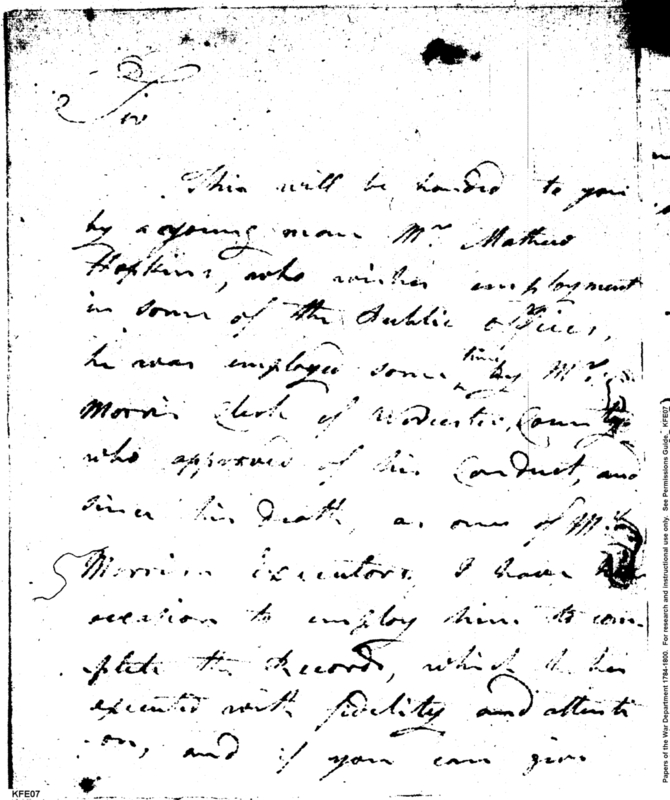 Sir
This will be handed to you
by a young man Mr. Mathew
Hopkins, who wishes employment
in some of the Public offices,
he was employed some time by Mr.
Morris Clerk of Worcester County
who approved of his Conduct, and
since his Death, as one of Mr.
Morriss Executors, I have had
occasion to employ him to com
plete the Records, which he has
executed with fidelity and attenti
on, and if you can give
KFE07
Papers of the War Department 1784-1800. For research and instructional use only. See Permissions Guide. KFE07